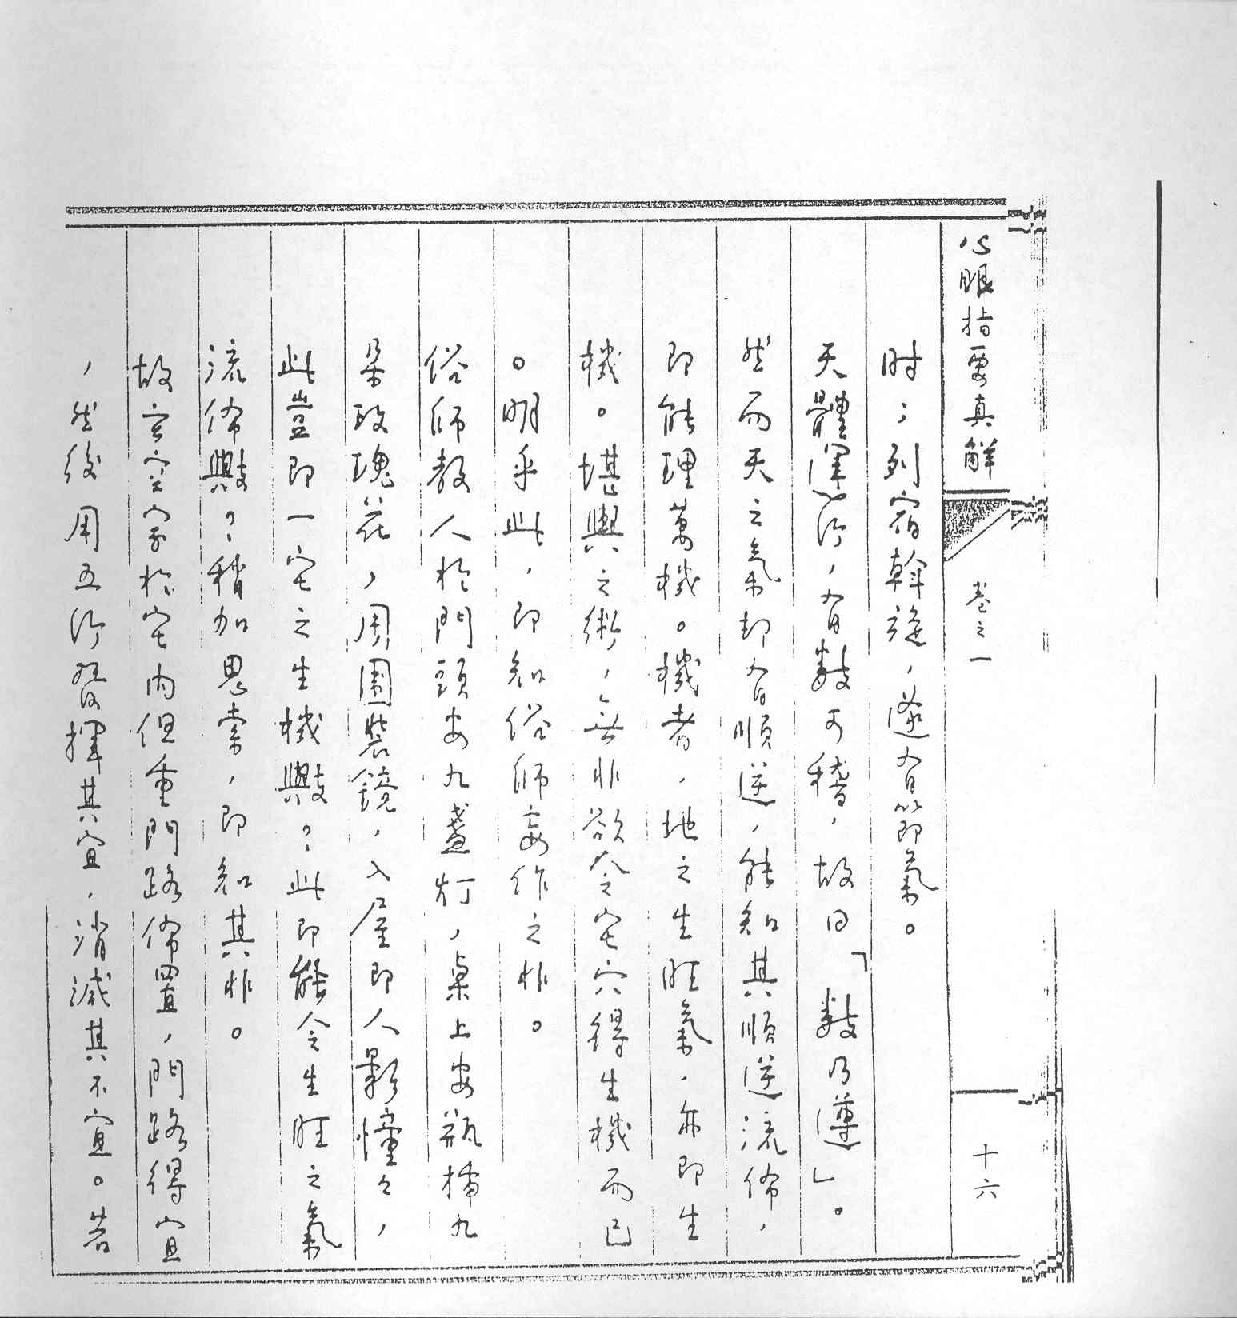 心眼指要真解
卷之一
十六
时；列宿斡旋，遂有節氣。
天體運行，有數可稽，故曰「數乃遵」。
然而天之氣却有順逆，能知其順逆流佈，
即能理萬機。機者，地之生旺氣，亦即生
機。堪輿之術，無非欲令宅穴得生機而已
。明乎此，即知俗師妄作之非。
俗師教人於門頭安九盞灯，桌上安瓶插九
朵玫瑰花，周圍裝鏡，入屋即人影憧々，
此豈即一宅之生機歟？此即能令生旺之氣
流佈歟？稍加思索，即知其非。
故玄空家於宅內但重門路佈置，門路得宜
，然後用五行發揮其宜，消滅其不宜。若